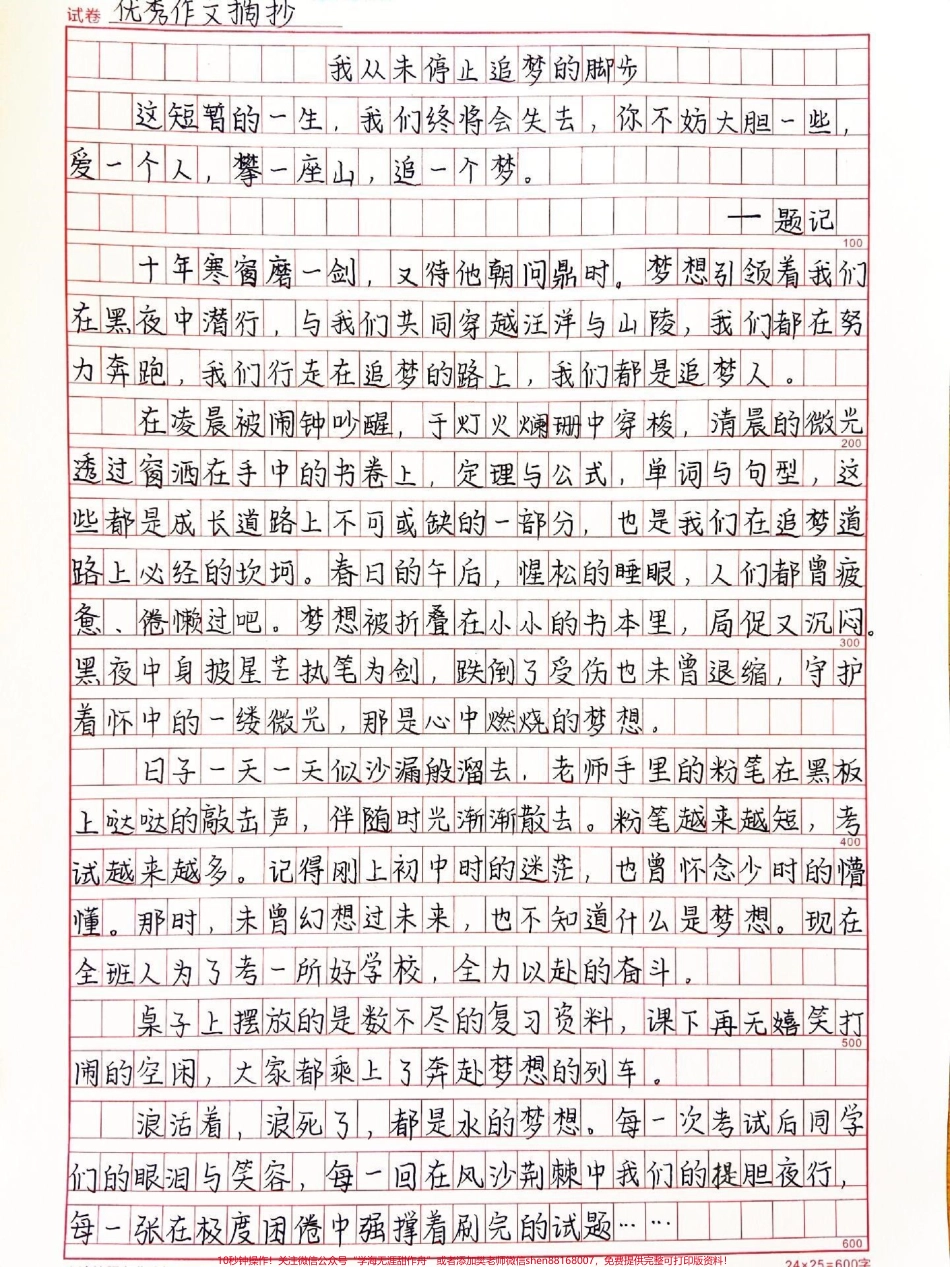 试卷 优秀作文摘抄
我从未停止追梦的脚步
这短暂的一生，我们终将会失去，你不妨大胆一些，
爱一个人，攀一座山，追一个梦。
一题记
100
十年寒窗磨一剑，又待他朝问鼎时。梦想引领着我们
在黑夜中潜行，与我们共同穿越汪洋与山陵，我们都在努
力奔跑，我们行走在追梦的路上，我们都是追梦人。
在凌晨被闹钟吵醒，于灯火斓珊中穿梭，清晨的微光
200
透过窗洒在手中的书卷上，定理与公式，单词与句型，这
些都是成长道路上不可或缺的一部分，也是我们在追梦道
路上必经的坎坷。春日的午后，惺松的睡眼，人们都曾疲
惫、倦懒过吧。梦想被折叠在小小的书本里，局促又沉闷。
300
黑夜中身披星芒执笔为剑，跌倒了受伤也未曾退缩，守护
着怀中的一缕微光，那是心中燃烧的梦想。
日子一天一天似沙漏般溜去，老师手里的粉笔在黑板
上哒哒的敲击声，伴随时光渐渐散去。粉笔越来越短，考
400
试越来越多。记得刚上初中时的迷茫，也曾怀念少时的懵
懂。那时，未曾幻想过未来，也不知道什么是梦想。现在
全班人为了考一所好学校，全力以赴的奋斗。
桌子上摆放的是数不尽的复习资料，课下再无嬉笑打
500
闹的空闲，大家都乘上了奔赴梦想的列车。
浪活着，浪死了，都是水的梦想。每一次考试后同学
们的眼泪与笑容，每一回在风沙荆棘中我们的提胆夜行，
每一张在极度困倦中强撑着刷完的试题……
600
10秒钟操作！关注微信公众号“学海无涯甜作舟”或者添加樊老师微信shen88168007，免费提供完整可打印版资料！
24×25=600字